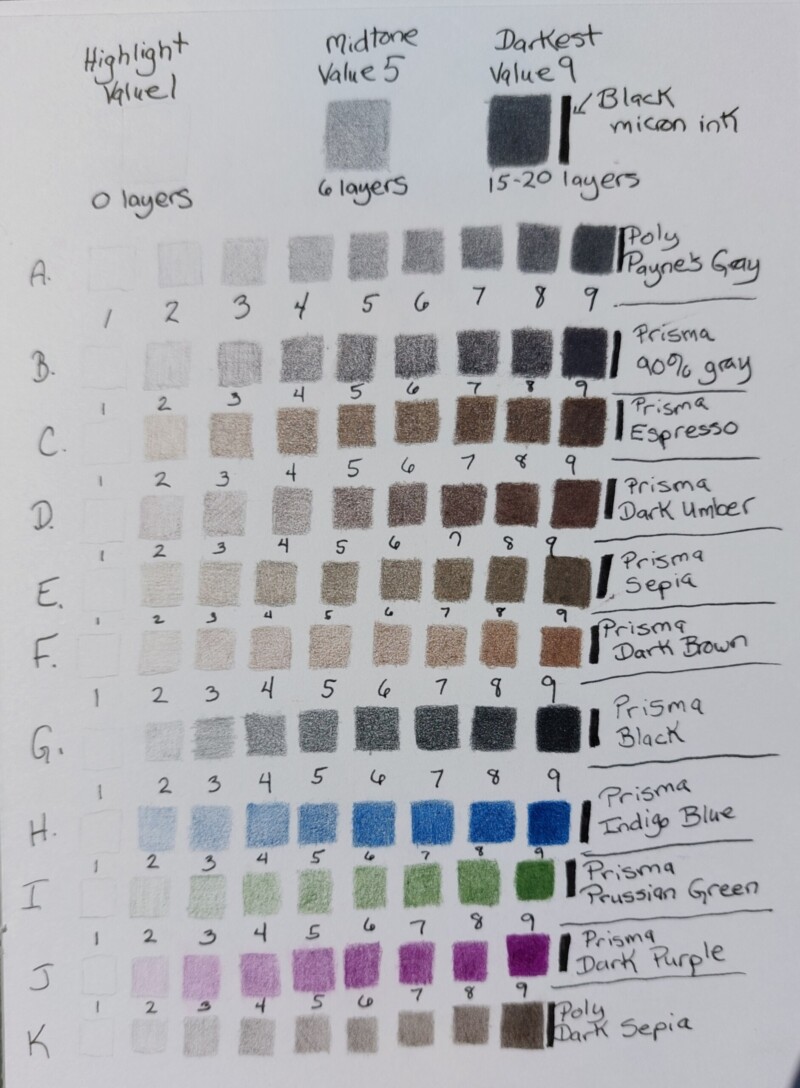 Highlight
Value 1
Midtone
Value 5
Darkest
Value 9
Black
micron ink
0 layers
6 layers
15-20 layers
A.
Poly
Payne's Gray
1 2 3 4 5 6 7 8 9
B.
Prisma
90% gray
1 2 3 4 5 6 7 8 9
C.
Prisma
Espresso
1 2 3 4 5 6 7 8 9
D.
Prisma
Dark Umber
1 2 3 4 5 6 7 8 9
E.
Prisma
Sepia
1 2 3 4 5 6 7 8 9
F.
Prisma
Dark Brown
1 2 3 4 5 6 7 8 9
G.
Prisma
Black
1 2 3 4 5 6 7 8 9
H.
Prisma
Indigo Blue
1 2 3 4 5 6 7 8 9
I
Prisma
Prussian Green
1 2 3 4 5 6 7 8 9
J
Prisma
Dark Purple
1 2 3 4 5 6 7 8 9
K
Poly
Dark Sepia